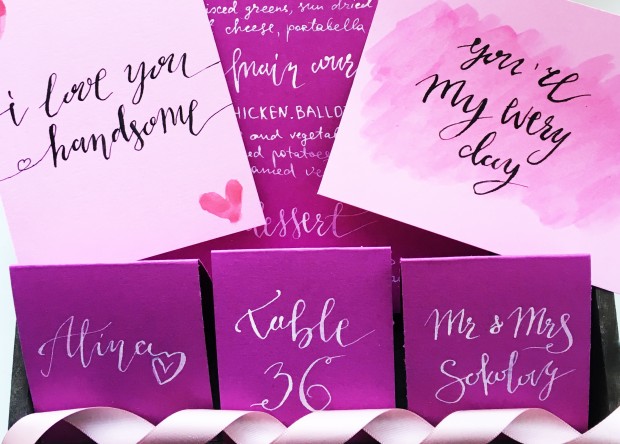 i love you
handsome
mixed greens, sun dried
cheese, portabella
main cour
CHICKEN. BALLO
and vegetab
potatoes
dessert
you're
my every
day
Alina
Table
36
Mr & Mrs
Sokolovy